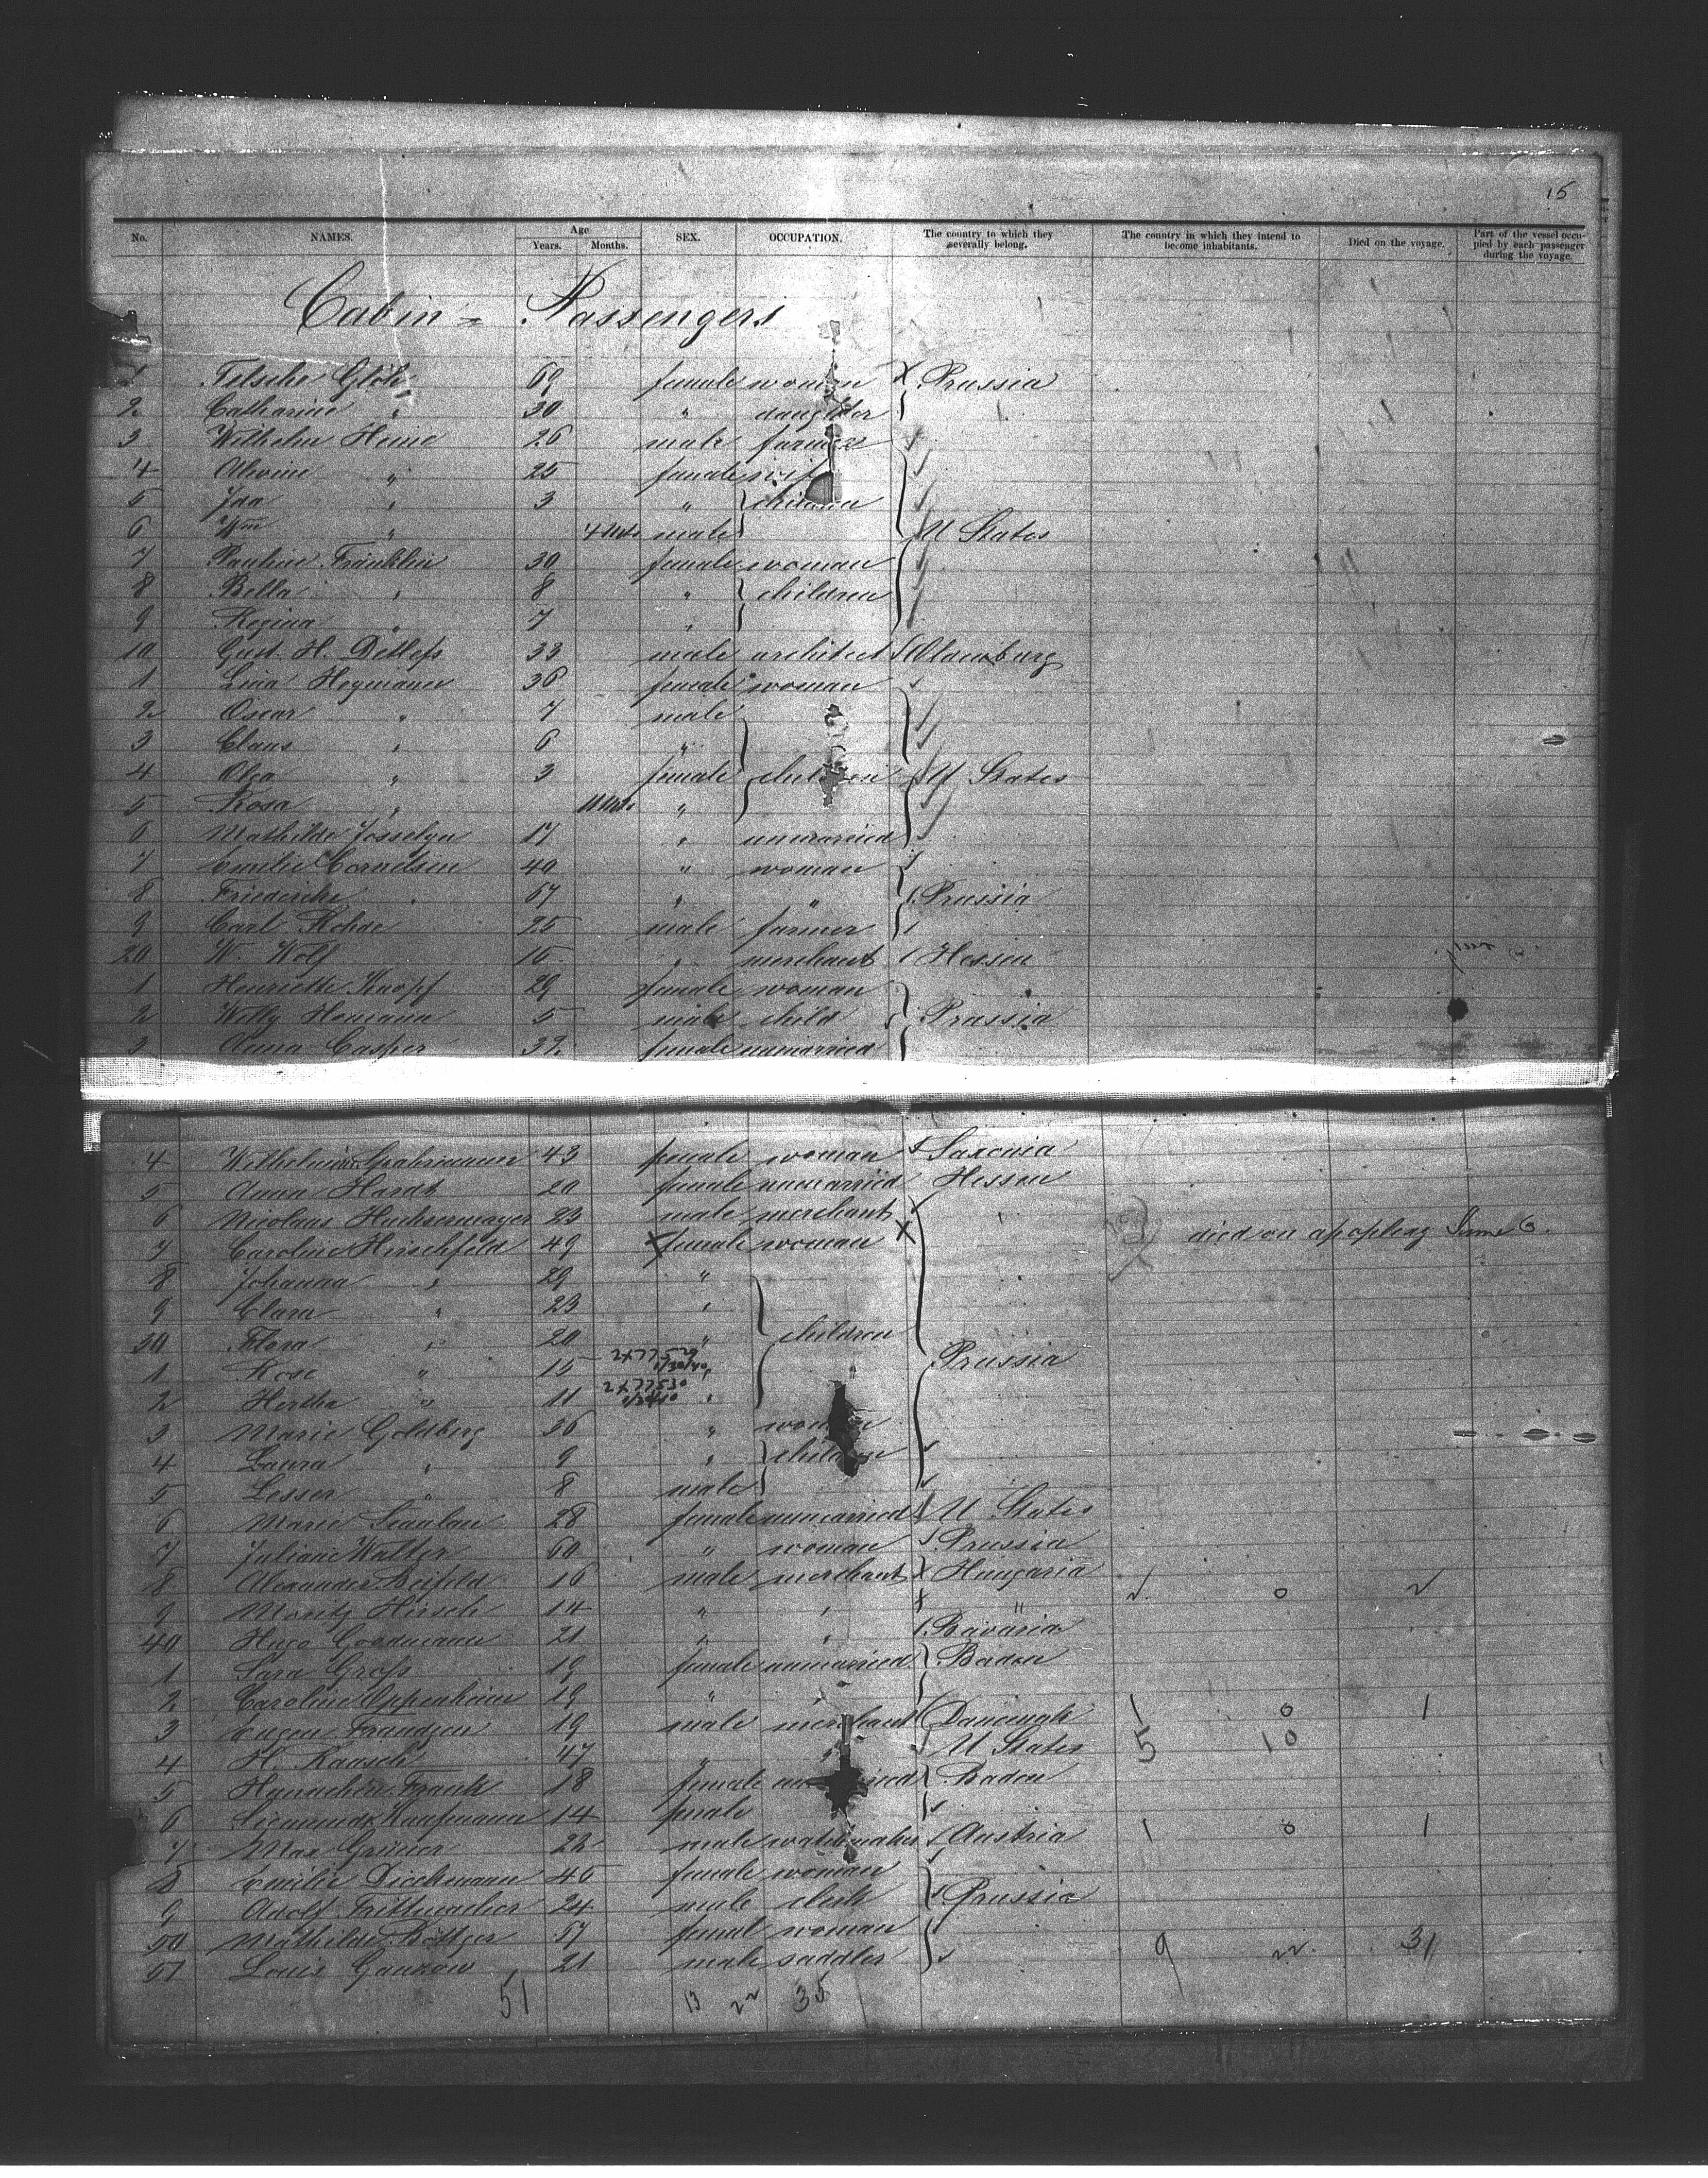 15
No. NAMES. Age Years. Months. SEX. OCCUPATION. The country to which they severally belong. The country in which they intend to become inhabitants. Died on the voyage. Part of the vessel occupied by each passenger during the voyage.
Cabin = Passengers
1 Telsche Glöh 69 female woman X Prussia
2 Catharine " 30 " daughter
3 Wilhelm Heine 26 male farmer
4 Alwine " 25 female wife
5 Ida " 3 " children
6 Wm " 4 Mts male U States
7 Pauline Fränklin 30 female woman
8 Bella " 8 " children
9 Regina " 7 "
10 Gust. H. Detlefs 33 male architect Oldenburg
1 Lina Hegmann 36 female woman
2 Oscar " 7 male
3 Claus " 6 "
4 Olga " 3 female children U States
5 Rosa " 11 Mts "
6 Mathilde Josselyn 17 " unmarried
7 Emilie Cornelsen 40 " woman
8 Friederike " 67 " " Prussia
9 Carl Rohde 25 male farmer
20 W. Wolf 16 " merchant Hessen
1 Henriette Knopf 29 female woman
2 Willy Homann 5 male child Prussia
3 Anna Casper 32 female unmarried
4 Wilhelmine Grahmann 43 female woman Saxonia
5 Anna Hardt 20 female unmarried Hessen
6 Nicolaus 23 male merchant
7 Caroline Hirschfeld 49 X female woman X died on apoplexy June 6.
8 Johanna " 29 "
9 Clara " 23 "
30 Flora " 20 " children
1 Rose " 15 " Prussia
2 Hertha " 11 "
3 Marie Goldberg 36 " woman
4 Laura " 9 " children
5 Lesser " 8 male
6 Marie 28 female unmarried U States
7 Juliane Walter 60 " woman Prussia
8 Alexander Beifeld 16 male merchant X Hungaria 2 0 2
9 Moritz Hirsch 14 " " X "
40 Hugo Goodmann 21 " " Bavaria
1 Sara Gross 19 female unmarried Baden
2 Caroline Oppenheim 19 " "
3 Eugen Frandsen 19 male merchant 1 0 1
4 H. Rausch 47 " " U States 5 10
5 Hannchen Frank 18 female unmarried Baden
6 Kaufmann 14 female
7 Max Grüner 22 male watchmaker Austria 1 0 1
8 Emilie Dieckmann 46 female woman
9 Adolf 24 male clerk Prussia
50 Mathilde Böttger 57 femal woman
51 Louis 21 male saddler 9 22 31
51 13 22 35